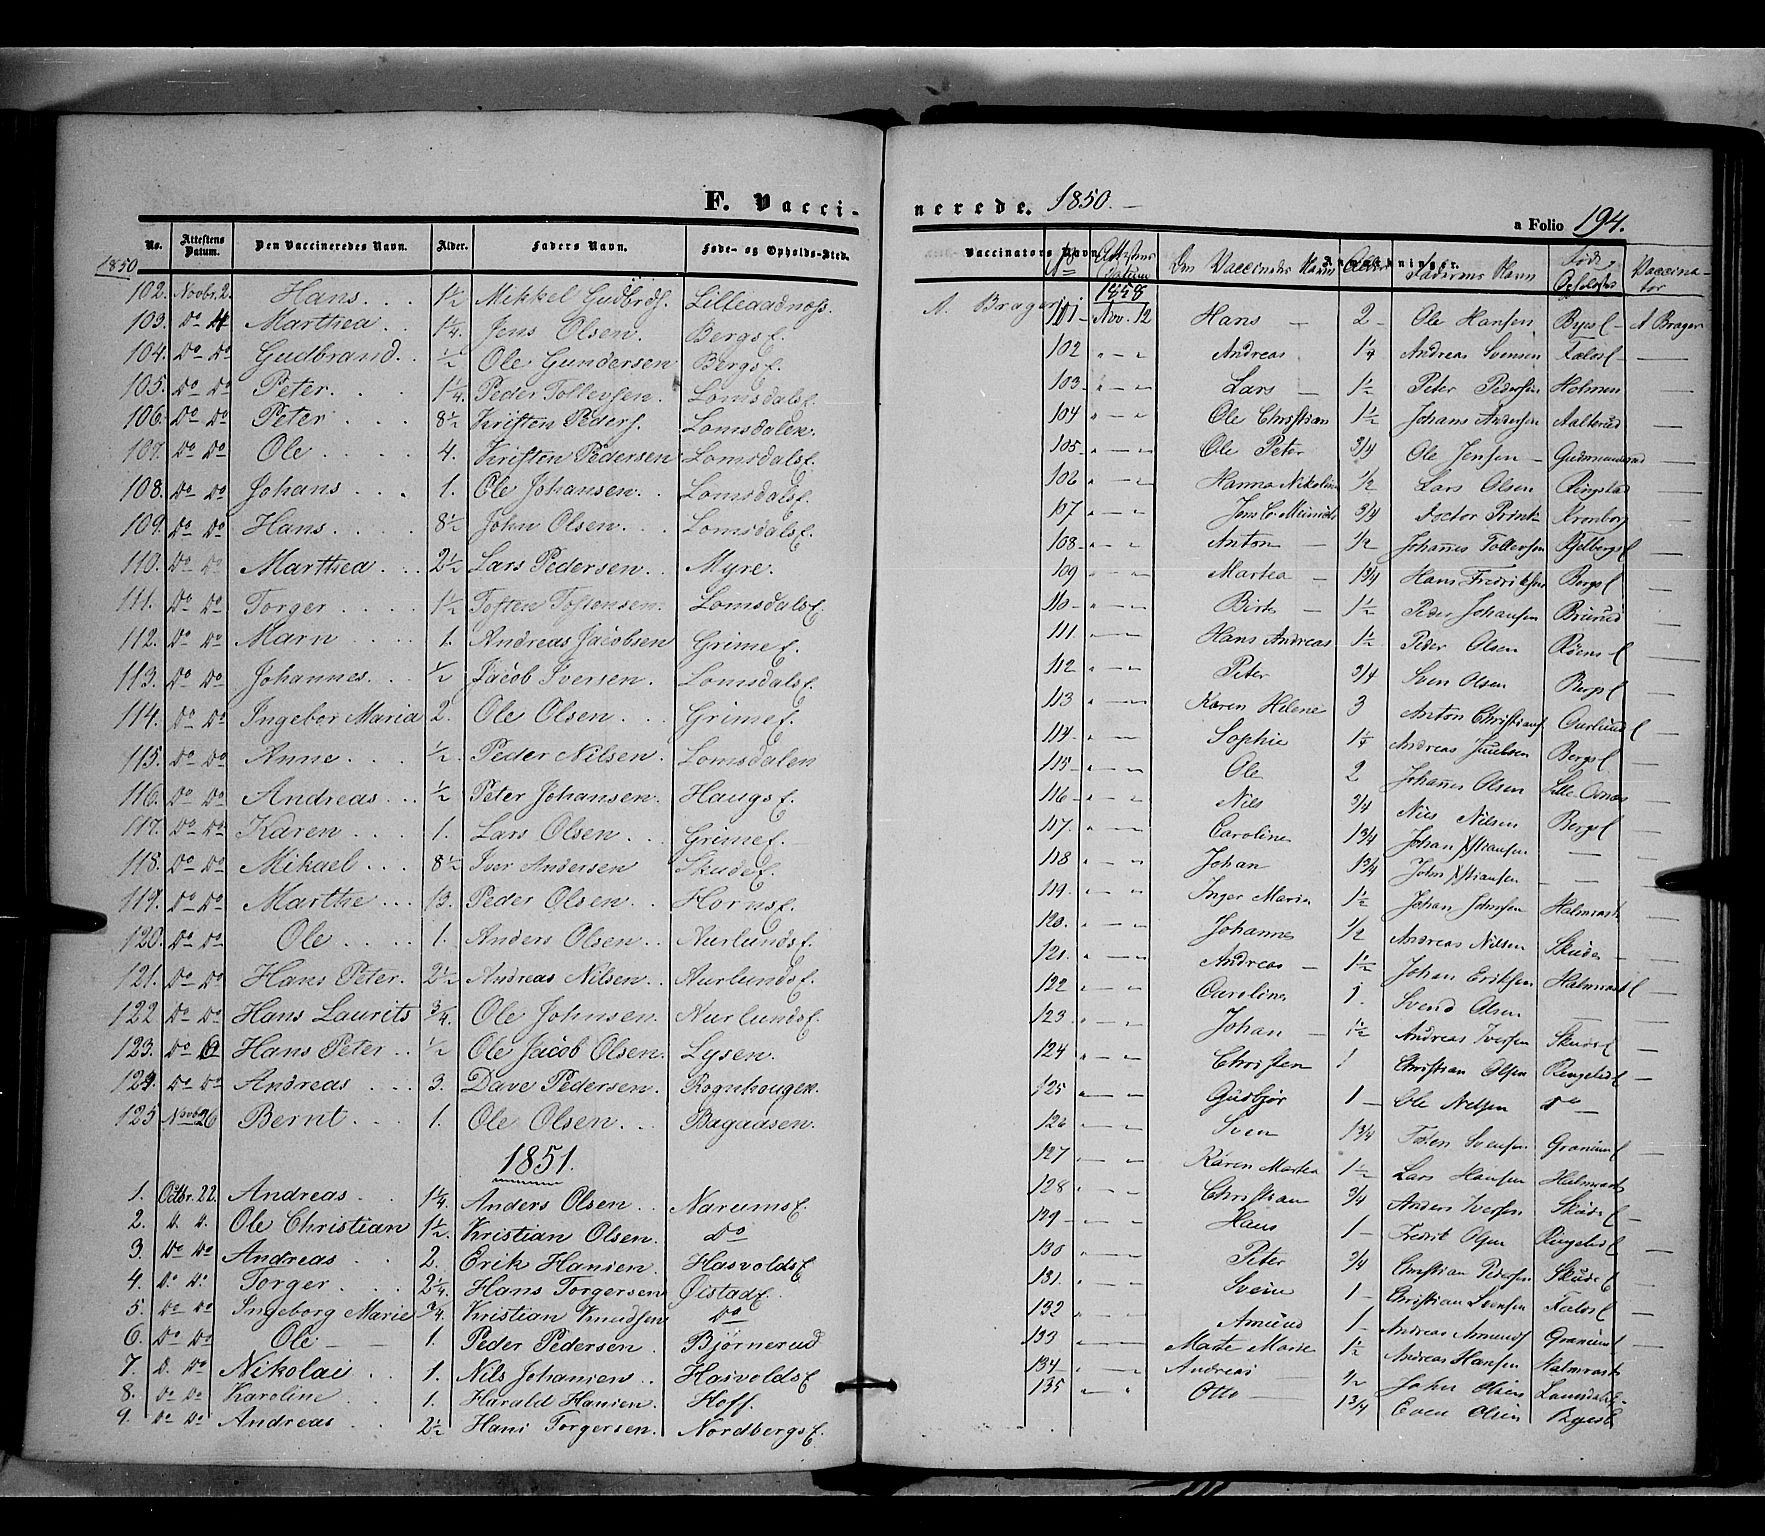 F. Vacci-
No. Attestens Datum. Den Vaccineredes Navn. Alder. Faders Navn. Føde- og Opholds-Sted.
1850
102. Novbr. 2. Hans. 1½ Mikkel Gudbrds. Lilleaadnæs.
103. Do 4 Marthea. 1¼. Jens Olsen. Bergsf.
104. Do Do Gudbrand. ½ Ole Gundersen Bergsf.
105. Do Do Peter. 1¼. Peder Tollevsen. Lomsdalsf.
106. Do Do Peter 8½ Kristen Peders. Lomsdalen.
107. Do Do Ole 4. Kristen Pedersen Lomsdalsf.
108. Do Do Johans 1. Ole Johansen. Lomsdalsf.
109. Do Do Hans. 8½ John Olsen. Lomsdalsf.
110. Do Do Marthea 2½ Lars Pedersen. Myre.
111. Do Do Torger 1½ Tosten Tostensen. Lomsdalsf.
112. Do Do Marn 1. Andreas Jacobsen Grimef.
113. Do Do Johannes. ½ Jacob Iversen. Lomsdalsf.
114. Do Do Ingebor Maria 2. Ole Olsen. Grimef.
115. Do Do Anne. ½. Peder Nilsen. Lomsdalen
116. Do Do Andreas ½ Peter Johansen. Haugsf.
117. Do Do Karen 1. Lars Olsen. Grimef.
118. Do Do Mikael 8½ Iver Andersen Skudef.
119. Do Do Marthe 13. Peder Olsen. Hornsf.
120. Do Do Ole. 1. Anders Olsen Aurlundsf.
121. Do Do Hans Peter. 2½ Andreas Nilsen. Aurlundsf.
122 Do Do Hans Laurits ¾. Ole Johnsen. Aurlundsf.
123. Do Hans Peter ½ Ole Jacob Olsen. Lysen.
124. Do Do Andreas 3. Dave Pedersen. Rognhougen.
125 Novbr 26 Bernt 1. Ole Olsen. Bagaasen.
1851.
1. Octbr. 22. Andreas. 1¼ Anders Olsen. Narumsf.
2. d. d. Ole Christian 1½. Kristian Olsen. Do
3. Do Do Andreas 2. Erik Hansen. Hasvoldsf.
4. Do Do Torger 2¼. Hans Torgersen Ølstadf.
5. Do Do Ingeborg Marie ¾. Kristian Knudsen Do
6. Do Do Ole 1. Peder Pedersen. Bjørnerud
7. D. Do Nikolai 1. Nils Johansen. Hasvoldsf.
8. Do Do Karoline 1. Harald Hansen. Hoff.
9. Do Do Andreas 2½ Hans Torgersen. Nordbergsf.
nerede. 1850.
a Folio 194.
Vaccinators Navn. Anmærkninger.
No Attestens Datum Den Vaccinredes Navn Alder Faderens Navn Føde, Opholdssted Vaccinator
1858
A. Brager
101 Nov. 12 Hans 2 Ole Hansen Byesf A Brager
102 Andreas 1¼ Andreas Svensen Falesf
103 Lars 1½ Peter Pedersen Holmen
104 Ole Christian 1½ Johans Andersen Aalterud
105 Ole Peter 3/4 Ole Jensen Gudmundsrud
106 Hanna Nikoline 1/2 Lars Olsen Ringstad
107 3/4 Doctor Printz Kronborg
108 Anton 1/2 Johannes Tollevsen Kjelbergsf
109 Martea 1 3/4 Hans Fredriksen Bergsf
110 Birte 1½ Peder Johansen Brurud
111. Hans Andreas 1½ Peder Olsen
112 Peter 3/4 Sven Olsen Bergsf
113 Karen Helene 3 Anton Christians Ourlundf
114 Sophie 1¼ Andreas Juulsen Bergsf
115 Ole 2 Johannes Olsen Lille Odnæs
116 Nils 3/4 Nils Nilsen Bergsf
117. Caroline 1 3/4 Johan
118 Johan 1 3/4 John
119. Inger Marie 1½ Johan Johnsen Halmrast
120. Johannes 1/2 Andreas Nilsen Skude
121. Andreas 1½ Johan Eriksen Halmrastf
122 Caroline 1. Svend Olsen
123. Johan 1½ Andreas Iversen Skudef
124 Christen 1 Christian Olsen Ringstedf
125 Gudbjør 1 Ole Nilsen Do
126 Sven 1 3/4 Torsten Svensen Granumf
127 Karen Martea 1½ Lars Hansen Halmrast
128 Christian 3/4 Anders Iversen Skudef
129 Hans 1 Fredrik Olsen Ringstedf
130 Peter 3/4 Christian Pedersen Skudef
131. Svein 1 Christian Svensen Falesf
132 Amund 1 Andreas Amunds Granumf
133 Marte Marie 1½ Andreas Hansen Halmrast
134 Andreas 1/2 John Olsen Lomsdalsf
135 Otto 1 3/4 Even Olsen Byesf